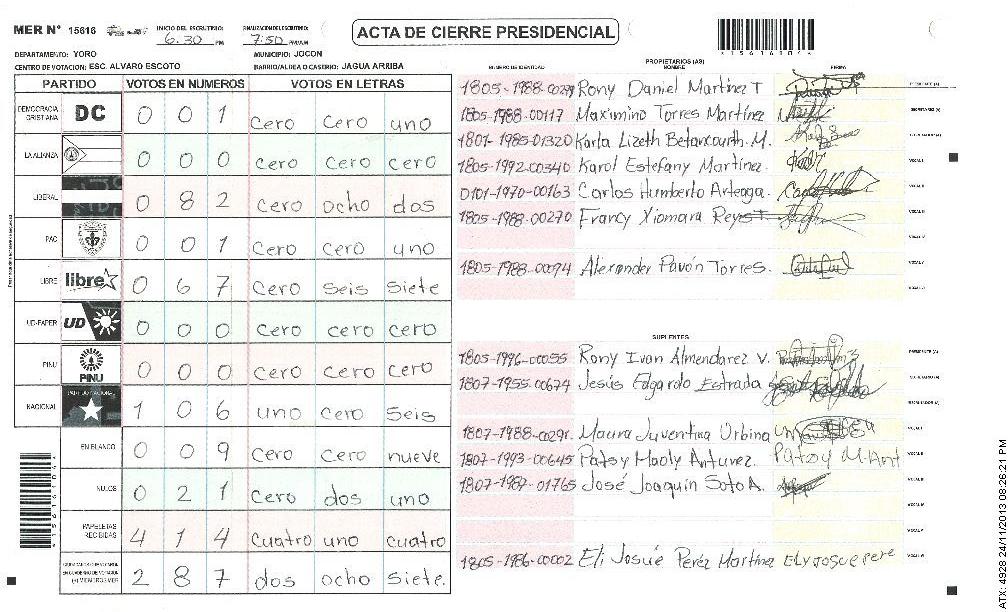 MER Nº 15616
INICIO DEL ESCRUTINIO: 6.30 PM
FINALIZACION DEL ESCRUTINIO: 7:50 PM/AM
ACTA DE CIERRE PRESIDENCIAL
*15616104*
DEPARTAMENTO: YORO
MUNICIPIO: JOCON
CENTRO DE VOTACION: ESC. ALVARO ESCOTO
BARRIO/ALDEA O CASERIO: JAGUA ARRIBA
PARTIDO VOTOS EN NUMEROS VOTOS EN LETRAS
DEMOCRACIA CRISTIANA DC 0 0 1 cero cero uno
LA ALIANZA 0 0 0 cero cero cero
LIBERAL 0 8 2 cero ocho dos
PAC 0 0 1 cero cero uno
LIBRE libre 0 6 7 cero seis siete
UD-FAPER UD 0 0 0 cero cero cero
PINU PINU 0 0 0 cero cero cero
NACIONAL 1 0 6 uno cero seis
EN BLANCO 0 0 9 cero cero nueve
NULOS 0 2 1 cero dos uno
PAPELETAS RECIBIDAS 4 1 4 cuatro uno cuatro
2 8 7 dos ocho siete.
PROPIETARIOS (AS)
NUMERO DE IDENTIDAD NOMBRE FIRMA
Rony Daniel Martínez T
1805-1988-00117 Maximino Torres Martínez
1801-1985-01320 Karla Lizeth Betancourth. M.
1805-1992-00340 Karol Estefany Martínez.
0101-1970-00163 Carlos Humberto Arteaga.
1805-1988-00270 Francy Xiomara Reyes T.
1805-1988-00074 Alexander Pavón Torres.
SUPLENTES
1805-1996-00055 Rony Ivan Almendarez v.
1807-1955-00674 Jesús Edgardo Estrada
Maura Juventina Urbina
1807-1993-00645 Patsy Maoly Antunez. Patsy M. Ant
1807-1987-01765 José Joaquin Soto A.
1805-1986-00002 Eli Josúe Peréz Martínez Ely josue pere
ATX: 4928 24/11/2013 08:26:21 PM